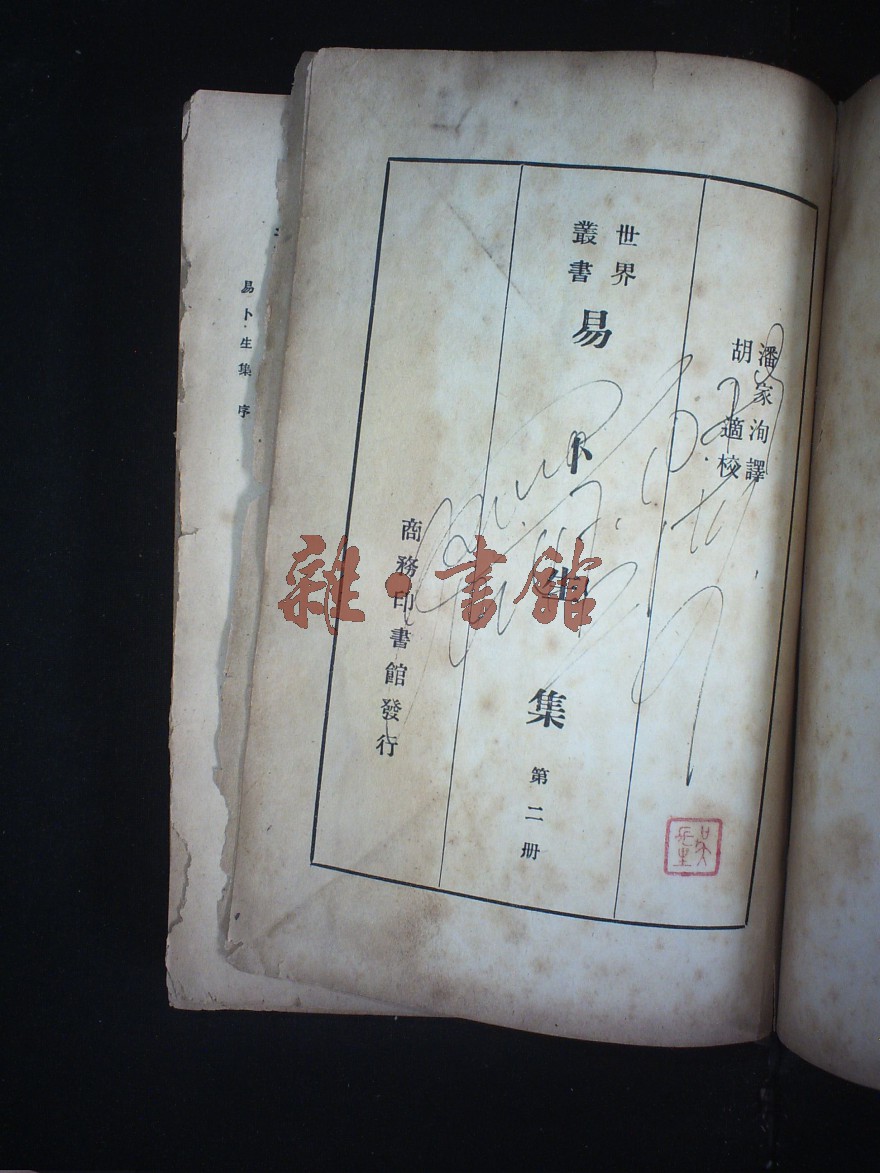 潘家洵譯
胡適校
世界
叢書
易卜生集
第二册
商務印書館發行
易卜生集 序
雜·書館